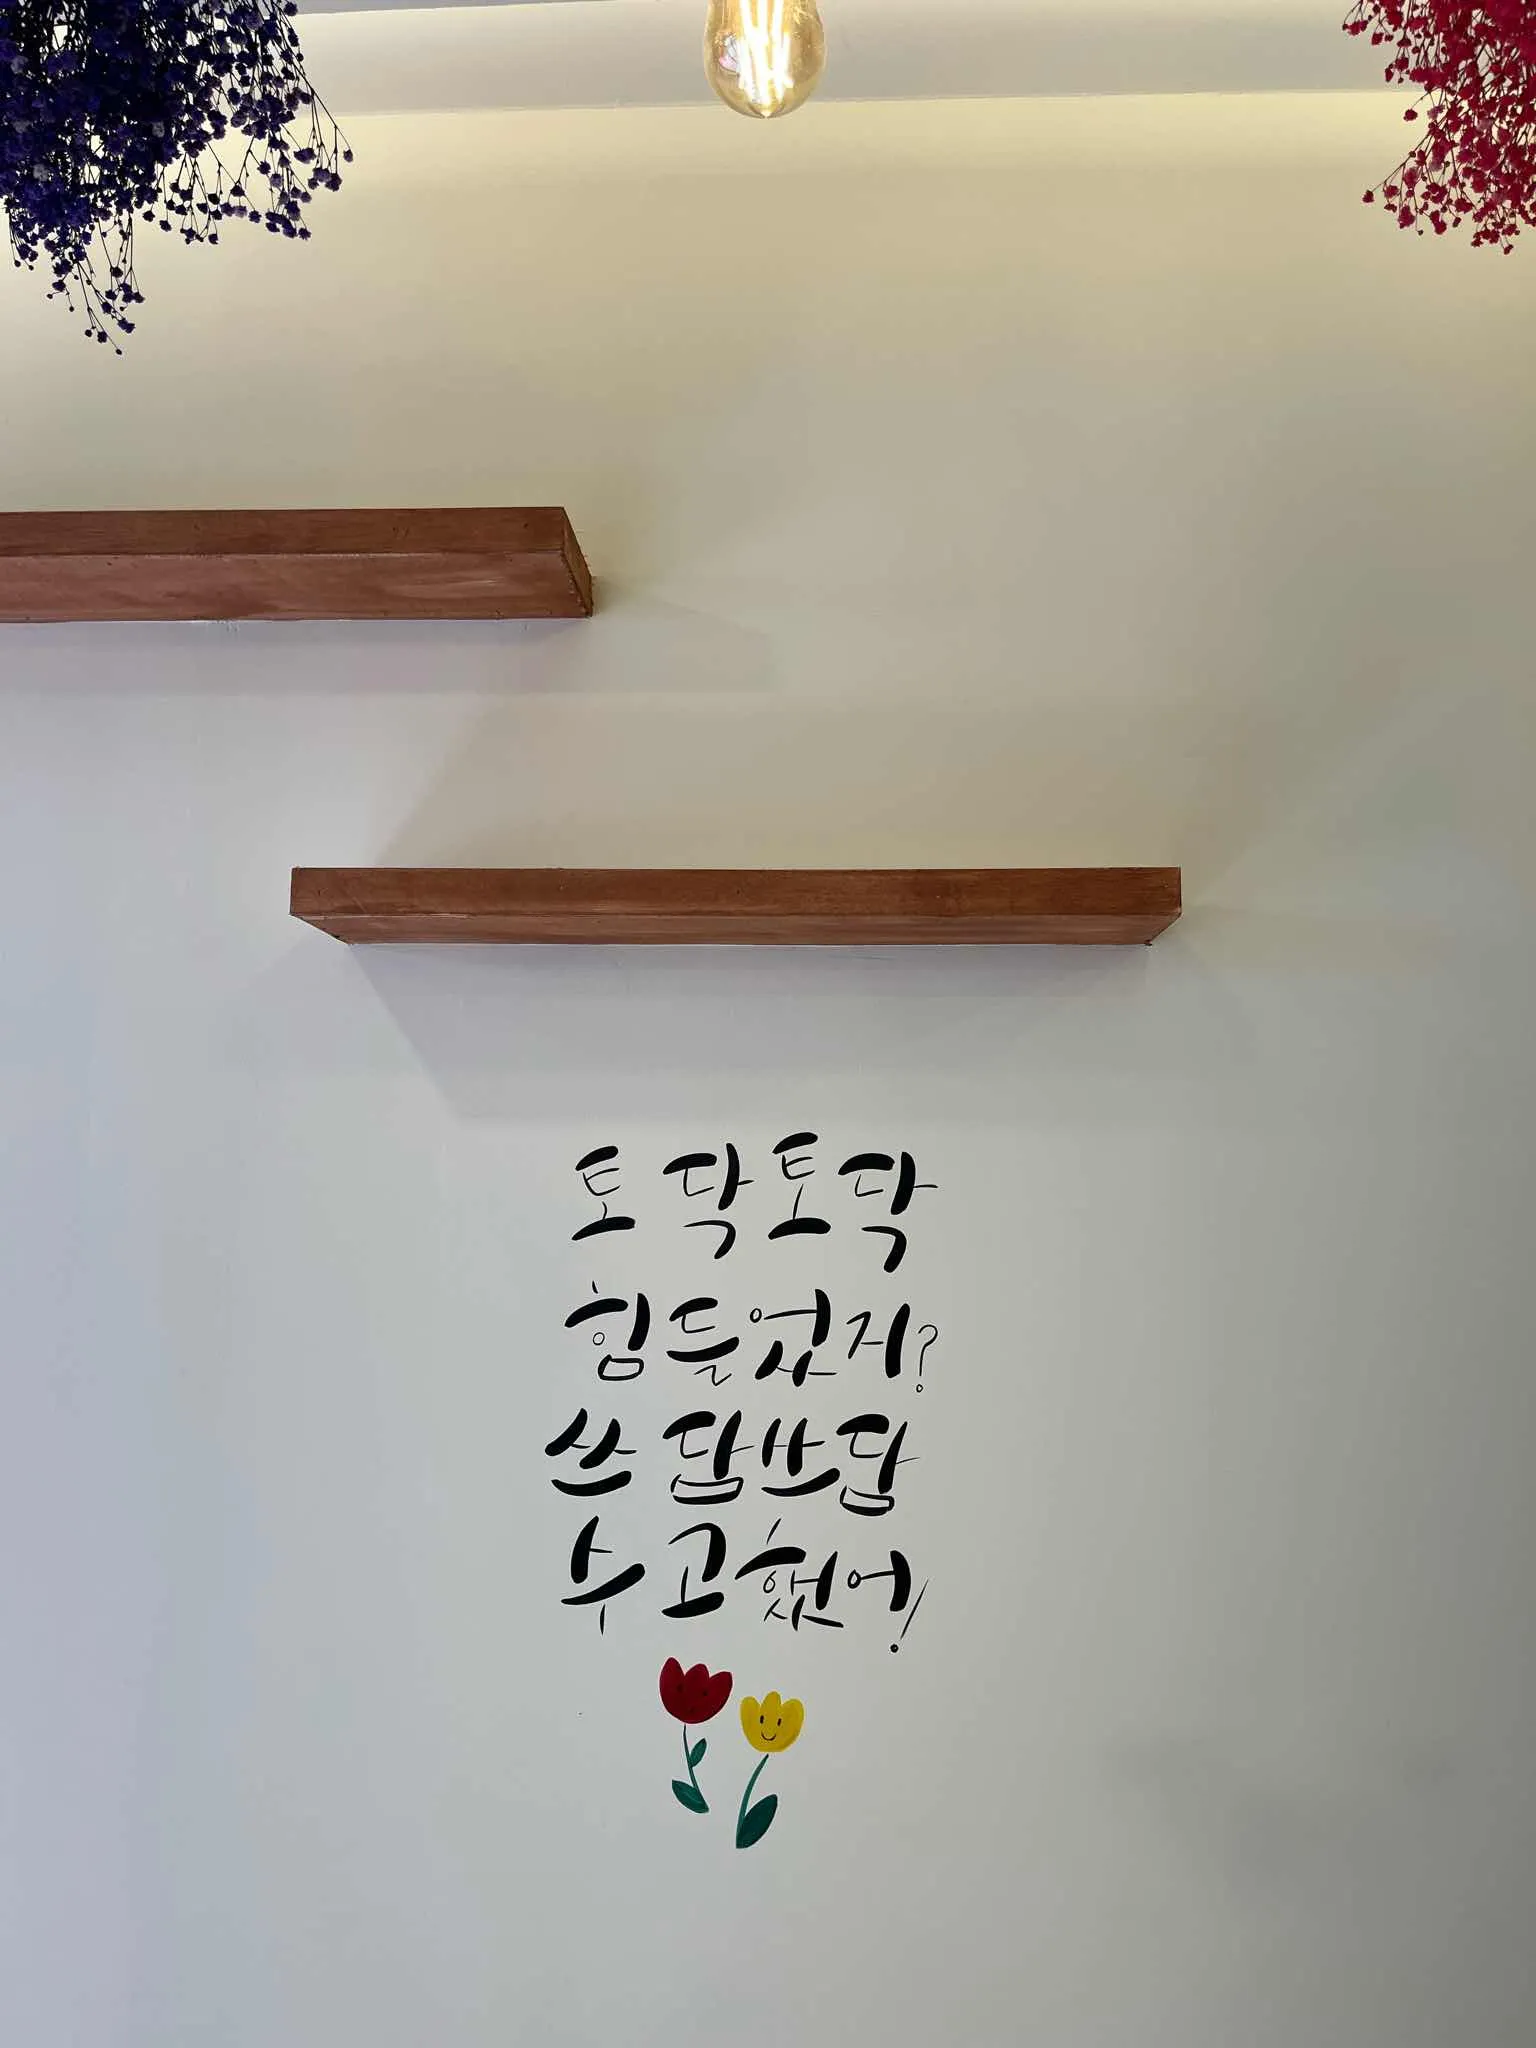 토닥토닥
힘들었지?
쓰담쓰담
수고했어!